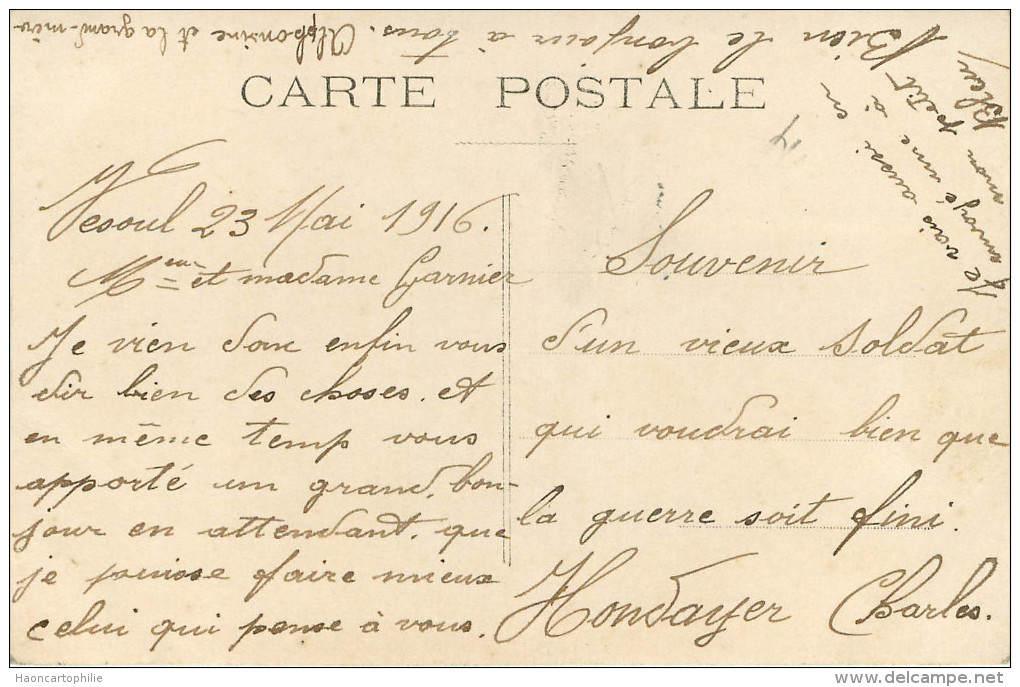 CARTE POSTALE
Vesoul 23 Mai 1916.
Meur et madame Garnier
Je vien donc enfin vous
dir bien des choses. et
en même temp vous
apporté un grand. bon-
jour en attendant. que
je puisse faire mieux
celui qui pense à vous.
Souvenir
d'un vieux soldat
qui voudrai bien que
la guerre soit fini.
Hondayer Charles.
Je vais aussi en
envoyé une à
mon petit
Bleu
Bien le bonjour à tous. Alphonsine et la grand-mère
Haoncartophilie
delcampe.net